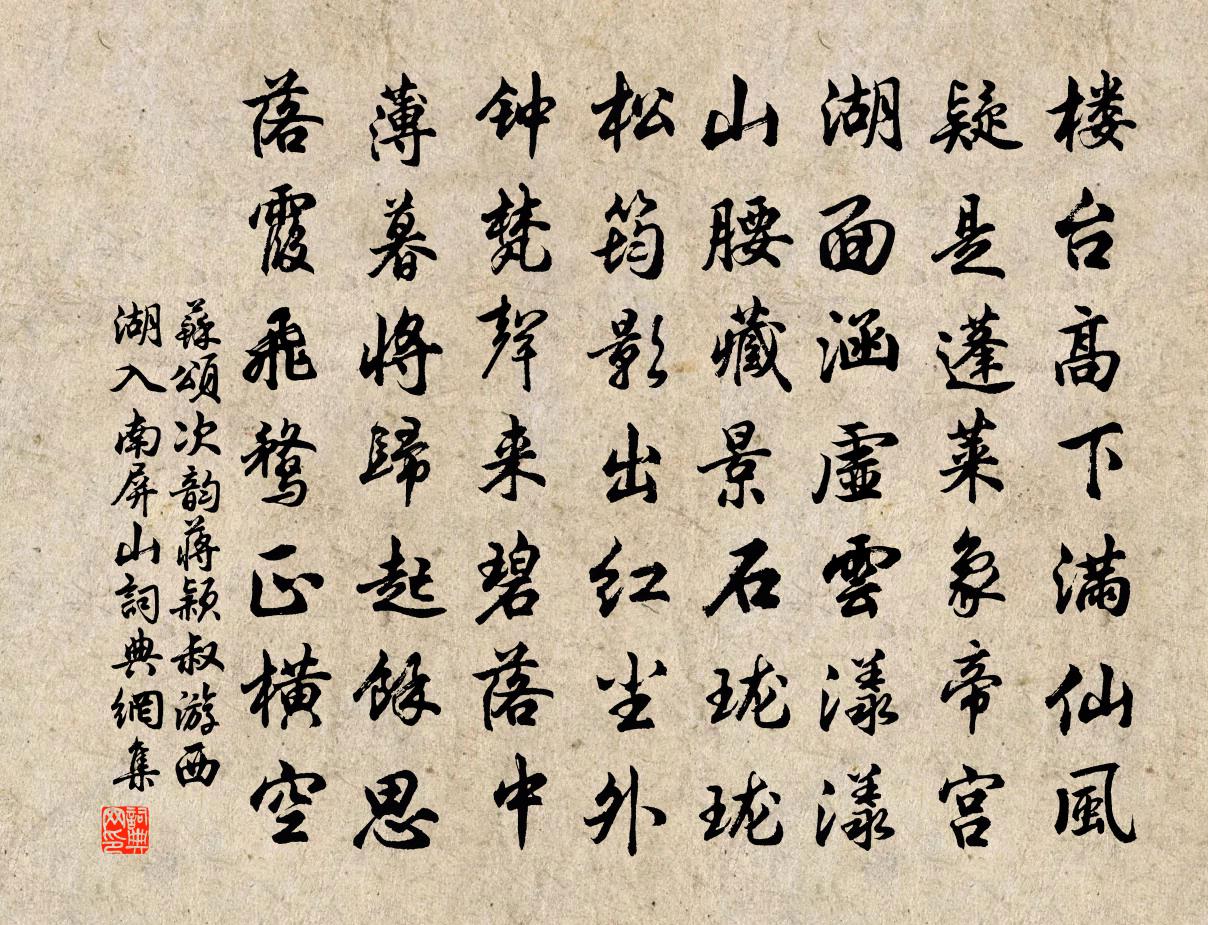 楼台高下满仙風
疑是蓬莱象帝宫
湖面涵虛雲漾漾
山腰藏景石珑珑
松筠影出红尘外
钟梵聲来碧落中
薄暮将歸起餘思
落霞飛鹜正橫空
蘇頌次韵蒋颖叔游西
湖入南屏山詞典網集
詞典
网印